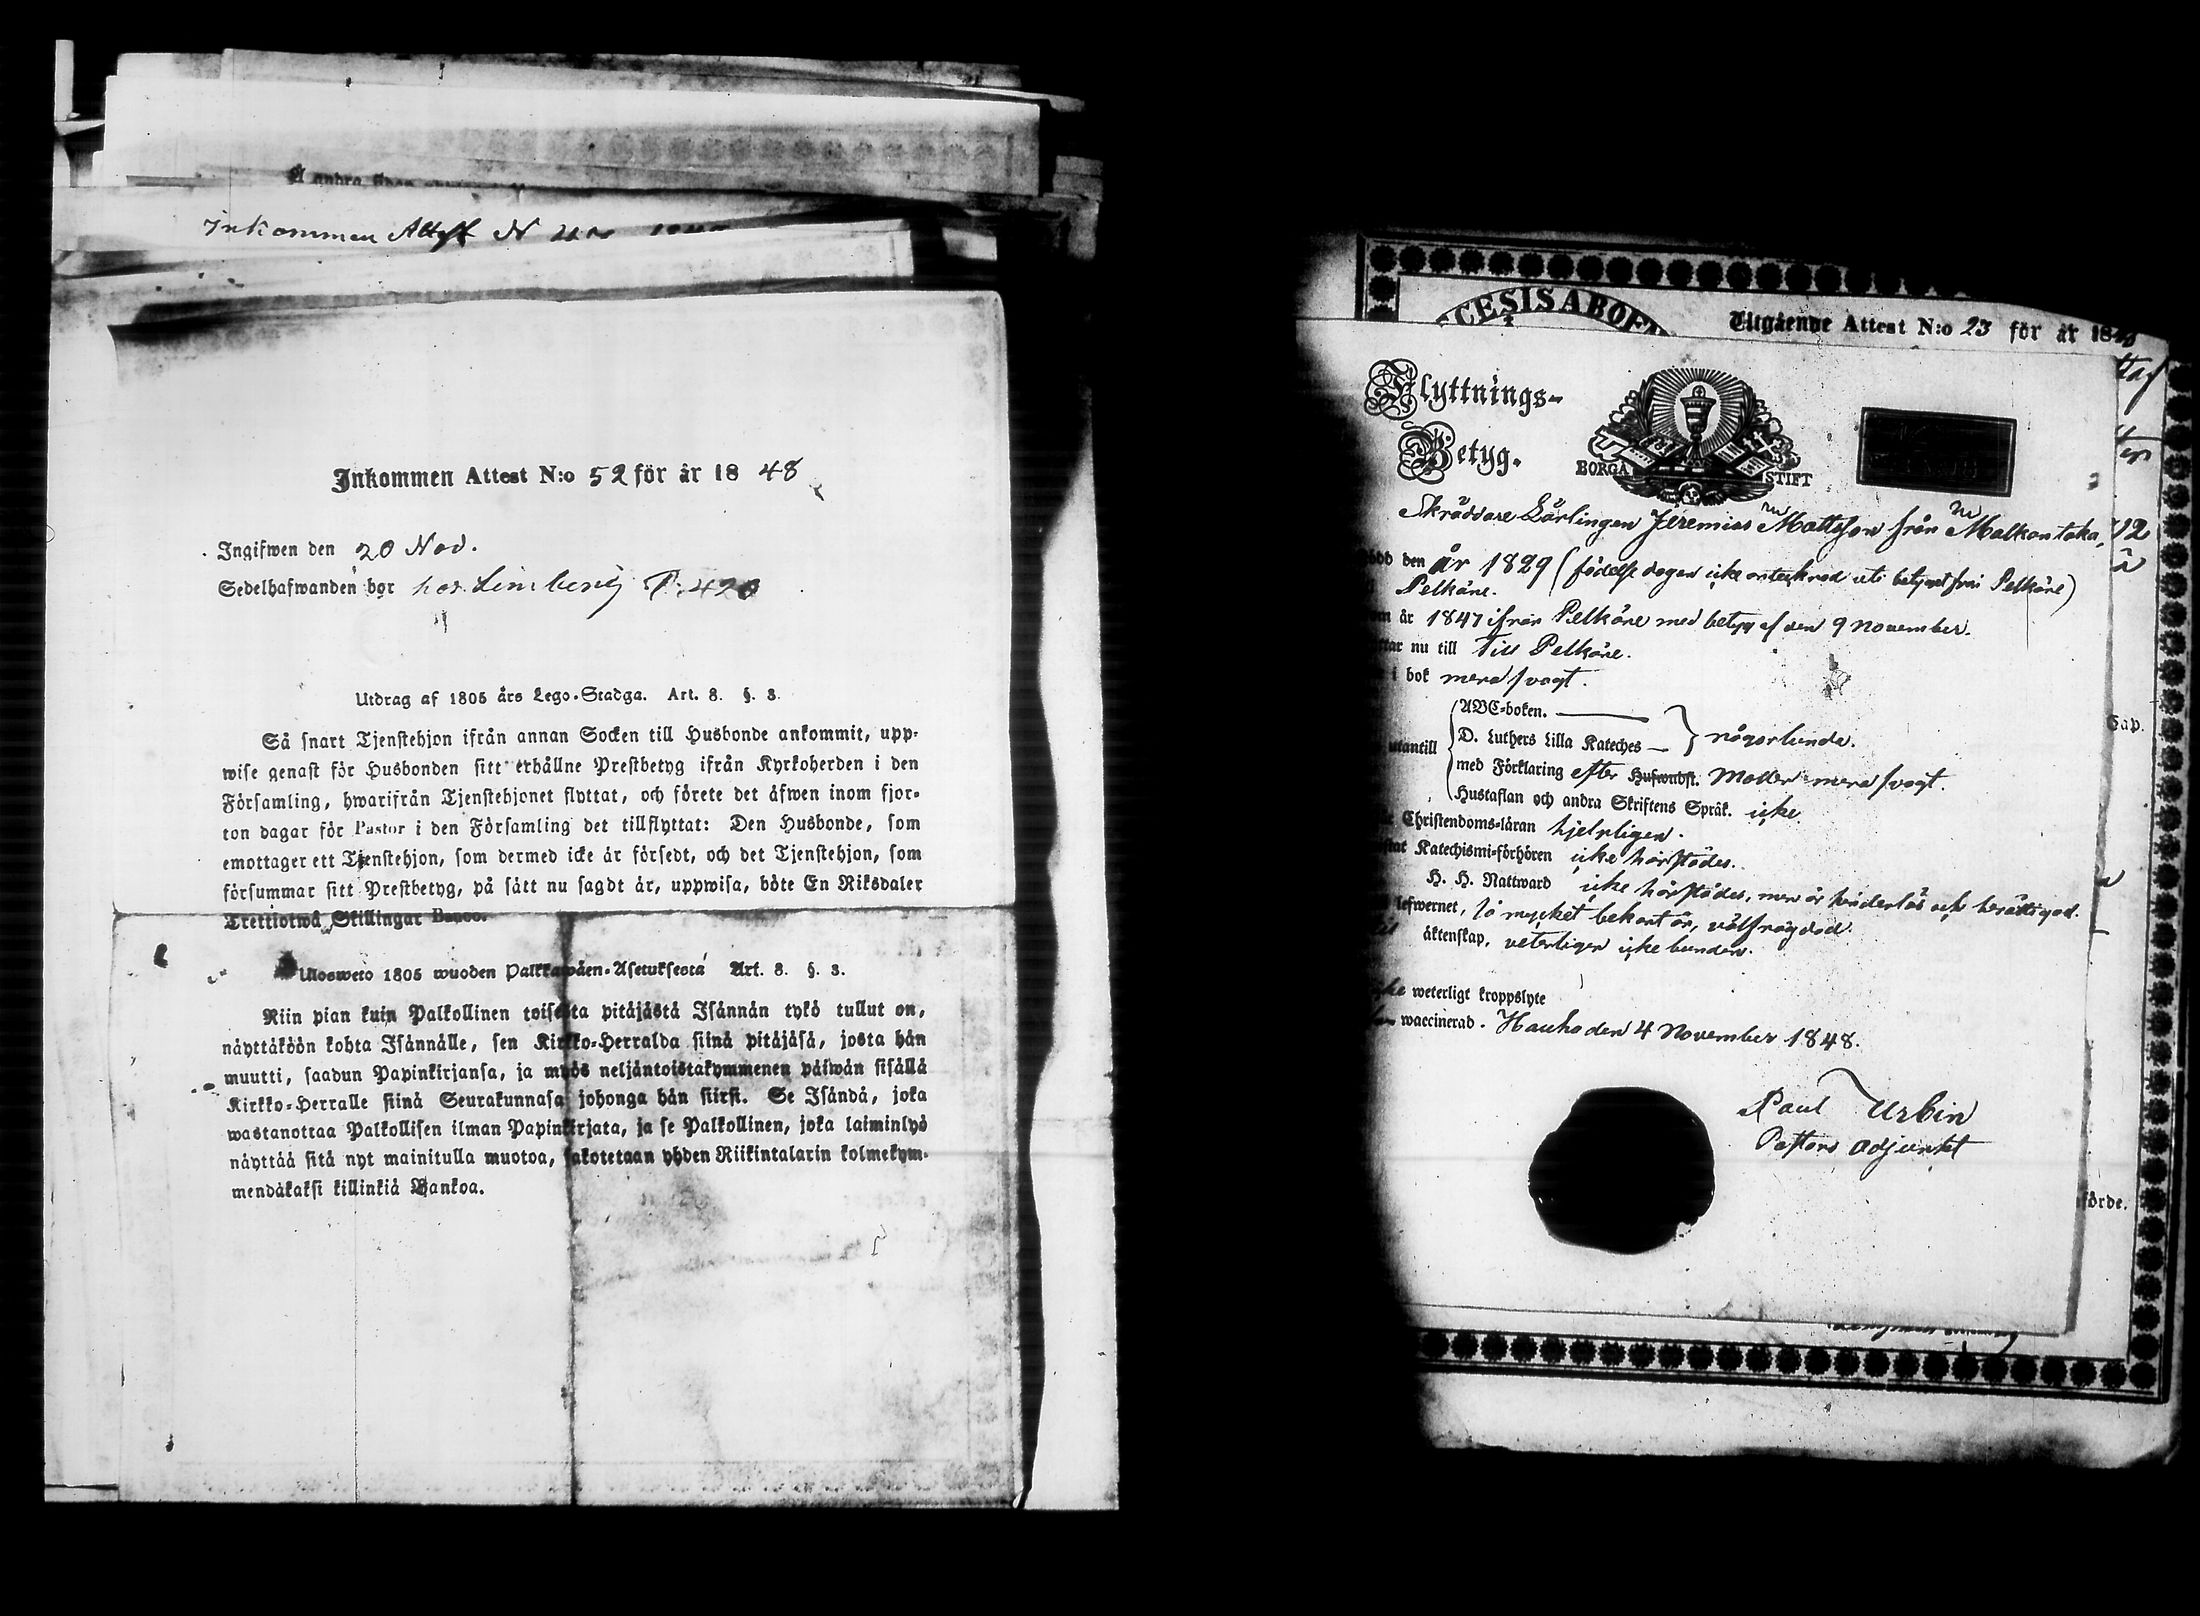 Å andra sidan
Inkommen Attest N
Inkommen Attest N:o 52 för år 18 48
Ingifwen den 20 Nov.
Sedelhafwanden bor hos Limberg P. 420
Utdrag af 1805 års Lego-Stadga. Art. 8. §. 3.
Så snart Tjenstehjon ifrån annan Socken till Husbonde ankommit, upp-
wise genast för Husbonden sitt erhållne Prestbetyg ifrån Kyrkoherden i den
Församling, hwarifrån Tjenstehjonet flyttat, och förete det äfwen inom fjor-
ton dagar för Pastor i den Församling det tillflyttat: Den Husbonde, som
emottager ett Tjenstehjon, som dermed icke är försedt, och det Tjenstehjon, som
försummar sitt Prestbetyg, på sätt nu sagdt är, uppwisa, böte En Riksdaler
Trettiotwå Skillingar Banco.
Ulosweto 1805 wuoden Palkkawäen-Asetuksesta Art. 8. §. 3.
Niin pian kuin Palkollinen toisesta pitäjästä Isännän tykö tullut on,
näyttäköön kohta Isännälle, sen Kirkko-Herralda siinä pitäjäsä, josta hän
muutti, saadun Papinkirjansa, ja myös neljäntoistakymmenen päiwän sisällä
Kirkko-Herralle siinä Seurakunnasa johonga hän siirsi. Se Isändä, joka
wastanottaa Palkollisen ilman Papinkirjata, ja se Palkollinen, joka laiminlyö
näyttää sitä nyt mainitulla muotoa, sakotetaan yhden Riikintalarin kolmekym-
mendäkaksi killinkiä Bankoa.
CESISABOE
Utgående Attest N:o 23 för år 18
Flyttnings-
Betyg.
BORGÅ STIFT
Skräddare Lärlingen Jeremias Mattsson från Malkontaka,
född den år 1829 (födelse dagen icke antecknad uti betyget från Pelkäne)
Pelkäne.
om år 1847 ifrån Pelkäne med betyg af den 9 November.
ttar nu till till Pelkäne.
i bok mera svagt.
utantill
ABC-boken.
D. Luthers Lilla Kateches någorlunda.
med Förklaring efter Hufwudst. Moller mera svagt.
Hustaflan och andra Skriftens Språk. icke
Christendoms-läran hjelpligen.
stat Katechismi-förhören icke härstädes.
H. H. Nattward icke härstädes, men är hinderlös och berättigad.
lefwernet, så mycket bekant är, välfrägdad.
äktenskap, veterligen icke bunden.
icke weterligt kroppslyte
waccinerad. Hauho den 4 November 1848.
Paul Urbin
Pastors Adjunkt
Cap.
förde.